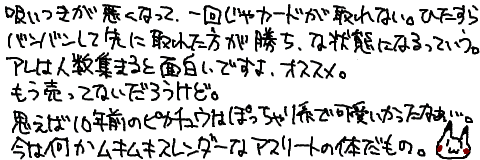 吸いつきが悪くなって、一回じゃカードが取れない。ひたすら
バンバンして先に取れた方が勝ち、な状態になるっていう。
アレは人数集まると面白いですよ、オススメ。
もう売ってないだろうけど。
思えば10年前のピカチュウはぽっちゃり系で可愛いかったなぁ…。
今は何かムキムキスレンダーなアスリートの体だもの。